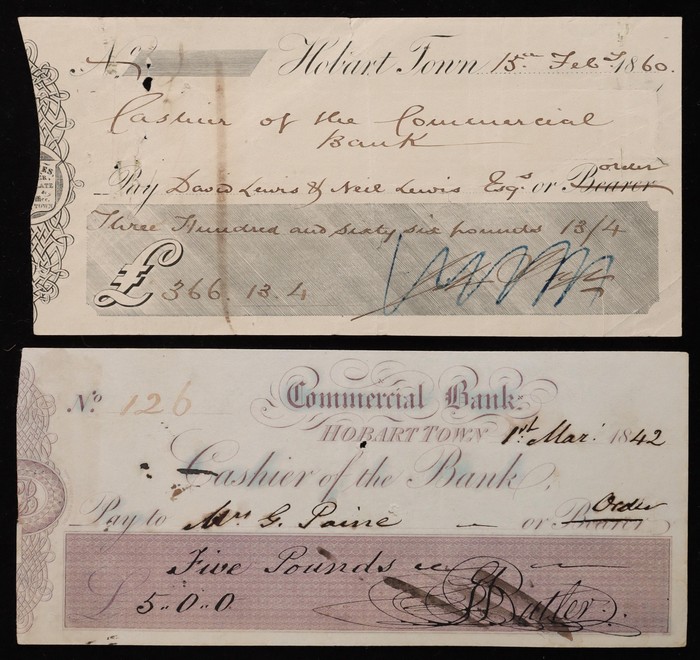 No
Hobart Town 15th Feby 1860.
Cashier of the Commercial
Bank
order
Pay David Lewis & Neil Lewis Esqs or Bearer
Three Hundred and sixty six pounds 13/4
£ 366. 13. 4
No. 126
Commercial Bank.
HOBART TOWN 1st Mar: 1842
Cashier of the Bank,
Order
Pay to Mrs G. Paine — or Bearer
Five Pounds
£ 5.. 0.. 0
Butler
B